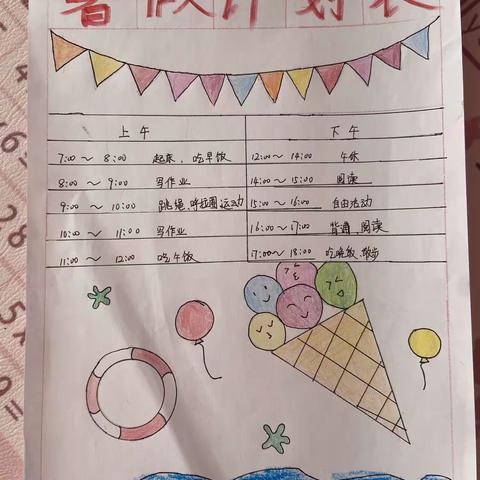 暑假计划表
上午 下午
7:00～8:00 起床、吃早饭 12:00～14:00 午休
8:00～9:00 写作业 14:00～15:00 阅读
9:00～10:00 跳绳、呼拉圈运动 15:00～16:00 自由活动
10:00～11:00 写作业 16:00～17:00 背诵、阅读
11:00～12:00 吃午饭 17:00～18:00 吃晚饭、散步